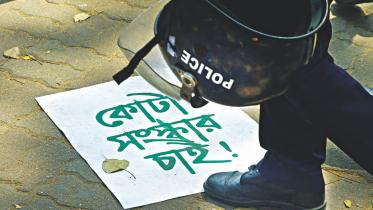 POLICE
কোটা
সংস্কার
চাই!